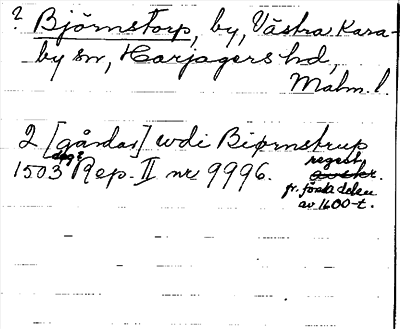 ? Björnstorp, by, Västra Kara-
by sn, Harjagers hd,
Malm. l.
2 [gårdar] wdi Biørnstrup
1503 Rep. II nr 9996. regest
fr. första delen
av 1600-t.